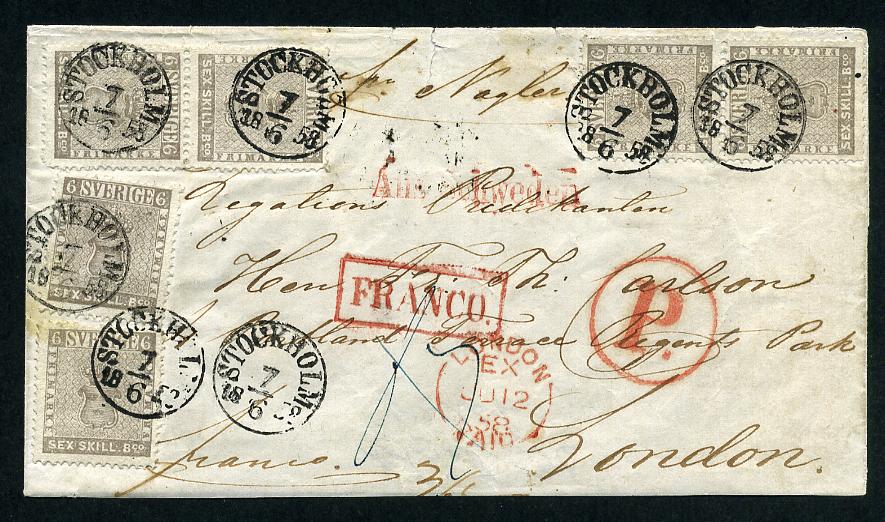 SVERIGE 6
FRIMARKE
SEX SKILL. Bco
STOCKHOLM
7
18 6 58
FRIMARKE
SEX SKILL. Bco
STOCKHOLM
7
18 6 58
FRIMARKE
STOCKHOLM
7
18 6 58
FRIMARKE
SEX SKILL. Bco
STOCKHOLM
7
18 6 58
pr Nagler
Aus Schweden
Legations Predikanten
Herr Fr. Th. Carlson
FRANCO.
P.
Terrace Regents Park
London.
franco.
LONDON
EX
JU 12
58
PAID
6 SVERIGE 6
FRIMARKE
SEX SKILL. Bco
STOCKHOLM
7
18 6 58
6 SVERIGE 6
FRIMARKE
SEX SKILL. Bco
STOCKHOLM
7
18 6 58
STOCKHOLM
7
18 6 58